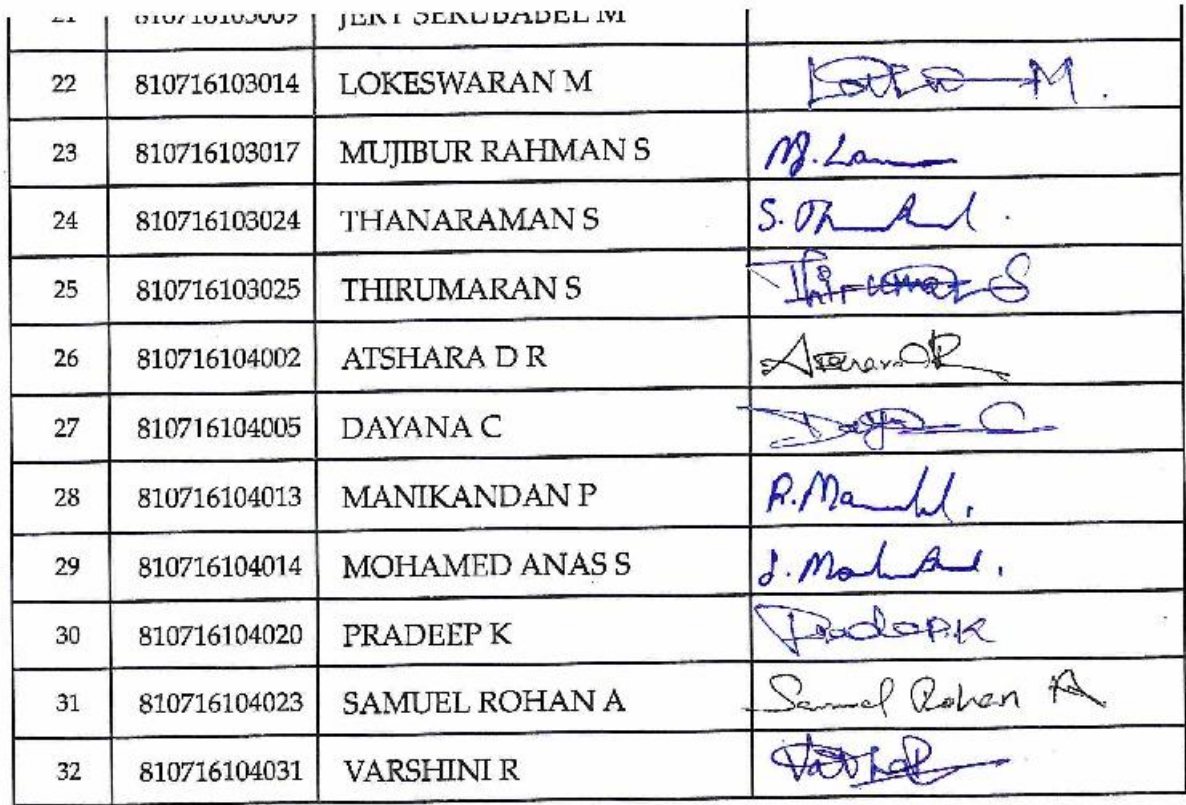 21 810716103009 JERY SERUBABEL M
22 810716103014 LOKESWARAN M
23 810716103017 MUJIBUR RAHMAN S
24 810716103024 THANARAMAN S
25 810716103025 THIRUMARAN S Thirumaran S
26 810716104002 ATSHARA D R
27 810716104005 DAYANA C
28 810716104013 MANIKANDAN P
29 810716104014 MOHAMED ANAS S
30 810716104020 PRADEEP K Pradeep.K
31 810716104023 SAMUEL ROHAN A Samuel Rohan A
32 810716104031 VARSHINI R